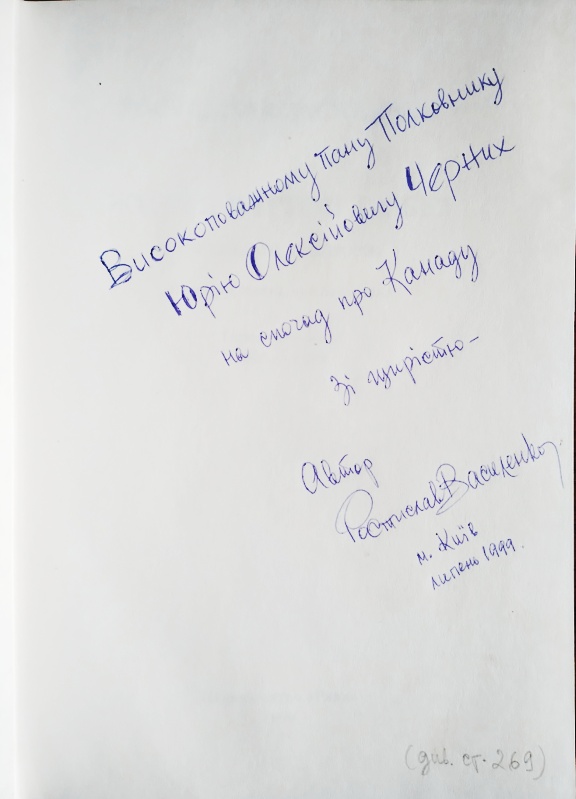 Високоповажному Пану Полковнику
Юрію Олексійовичу Черних
на спогад про Канаду
Зі щирістю –
Автор
Ростислав Василенко
м. Київ
липень 1999.
(див. ст. 269)